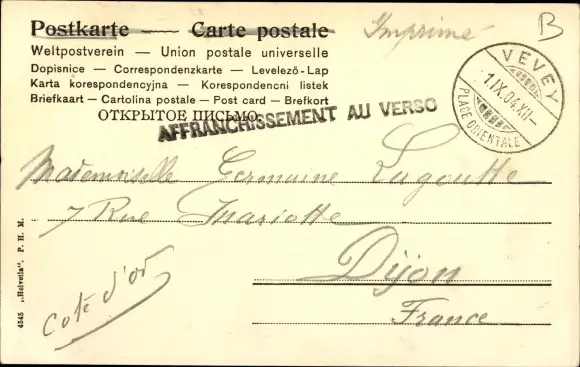 Postkarte — Carte postale
Imprimé
B
Weltpostverein — Union postale universelle
Dopisnice — Correspondenzkarte — Levelező-Lap
Karta korespondencyjna — Korespondencni listek
Briefkaart — Cartolina postale — Post card — Brefkort
ОТКРЫТОЕ ПИСЬМО.
AFFRANCHISSEMENT AU VERSO
VEVEY
1.IX.04.XII–
PLACE ORIENTALE
Mademoiselle Germaine Lagoutte
7 Rue Mariotte
Dijon
Côte d'or
France
4545 „Helvetia" P. H. M.